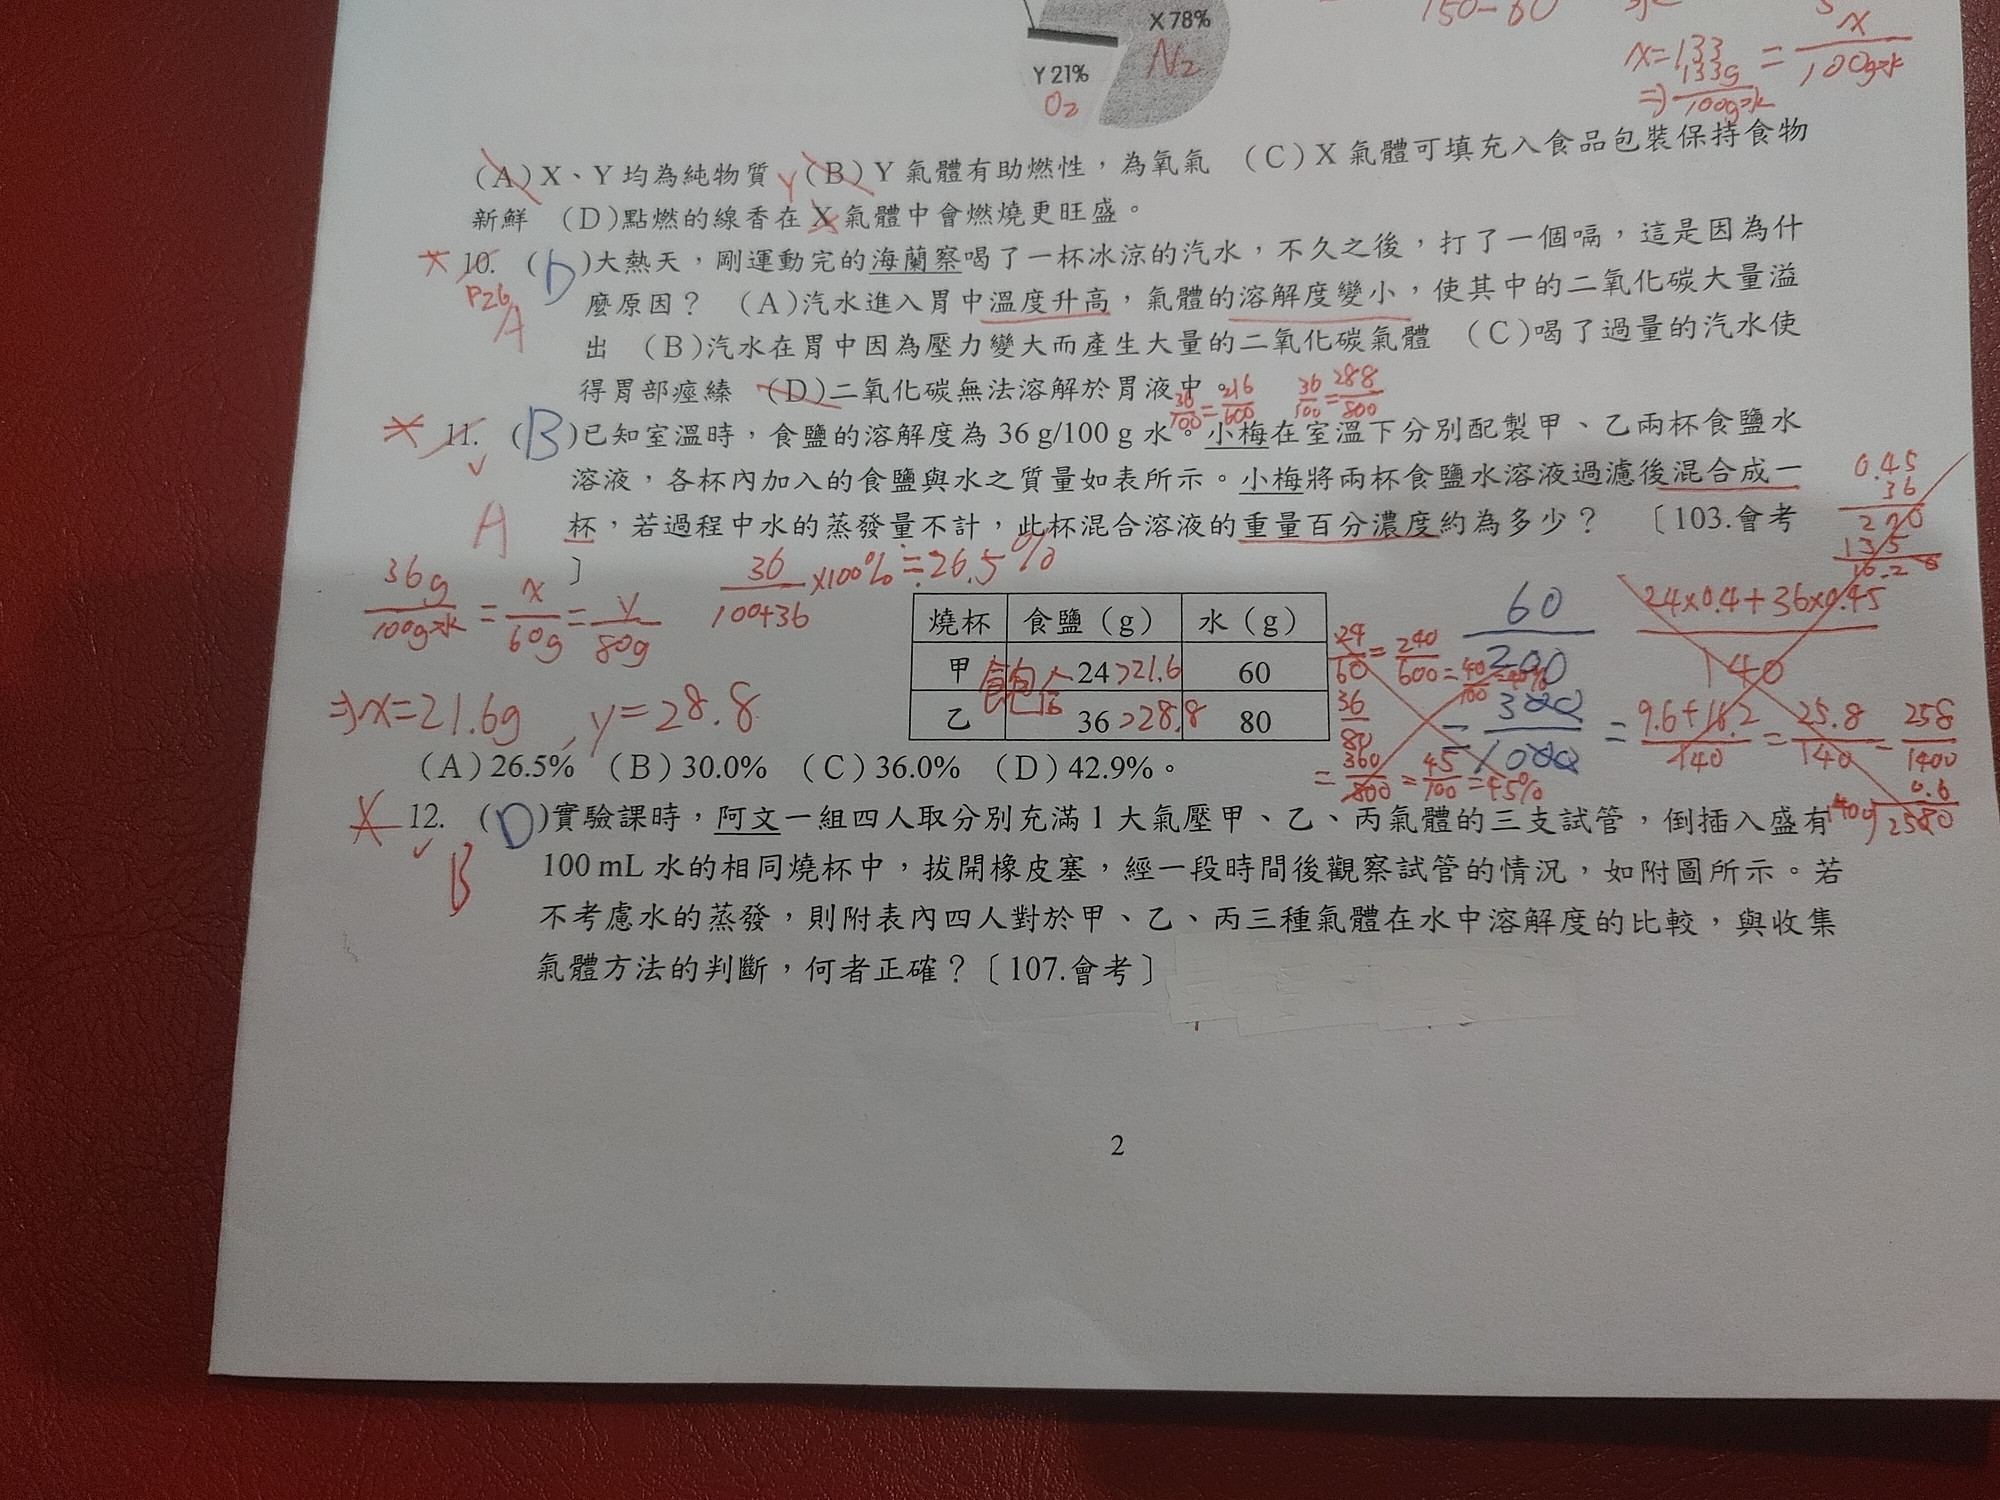 150-60
X 78%
N₂
x=133
133g/100g水 = x/100g水
Y 21%
O₂
(A)X、Y 均為純物質 (B)Y 氣體有助燃性，為氧氣 (C)X 氣體可填充入食品包裝保持食物
新鮮 (D)點燃的線香在 X 氣體中會燃燒更旺盛。
10. (D)大熱天，剛運動完的海蘭察喝了一杯冰涼的汽水，不久之後，打了一個嗝，這是因為什
P26
A
麼原因？ (A)汽水進入胃中溫度升高，氣體的溶解度變小，使其中的二氧化碳大量溢
出 (B)汽水在胃中因為壓力變大而產生大量的二氧化碳氣體 (C)喝了過量的汽水使
得胃部痙縥 (D)二氧化碳無法溶解於胃液中。
36/100=216/600 36/100=288/800
11. (B)已知室溫時，食鹽的溶解度為 36 g/100 g 水。小梅在室溫下分別配製甲、乙兩杯食鹽水
溶液，各杯內加入的食鹽與水之質量如表所示。小梅將兩杯食鹽水溶液過濾後混合成一
A
杯，若過程中水的蒸發量不計，此杯混合溶液的重量百分濃度約為多少？ 〔103.會考
〕
0.45
36
270
135
16.20
36g/100g水 = x/60g = y/80g
36/100+36 ×100%≒26.5%
⇒x=21.6g , y=28.8
燒杯 食鹽（g） 水（g）
甲 24>21.6 60
乙 36>28.8 80
飽
24/60=240/600=40/100=40%
36/80
=360/800=45/100=45%
60/200
=300/1000
24×0.4+36×0.45/140
=9.6+16.2/140=25.8/140=258/1400
(A)26.5% (B)30.0% (C)36.0% (D)42.9%。
12. (D)實驗課時，阿文一組四人取分別充滿 1 大氣壓甲、乙、丙氣體的三支試管，倒插入盛有
B
100 mL 水的相同燒杯中，拔開橡皮塞，經一段時間後觀察試管的情況，如附圖所示。若
不考慮水的蒸發，則附表內四人對於甲、乙、丙三種氣體在水中溶解度的比較，與收集
氣體方法的判斷，何者正確？〔107.會考〕
2